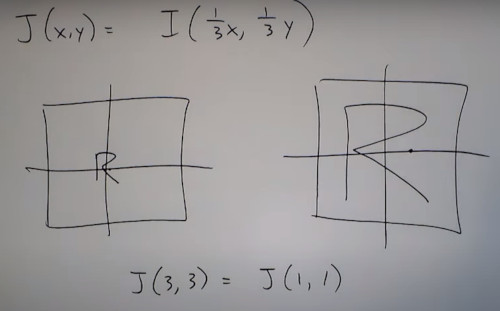 J(x,y) = I(1/3x, 1/3y)
R R
J(3,3) = J(1,1)